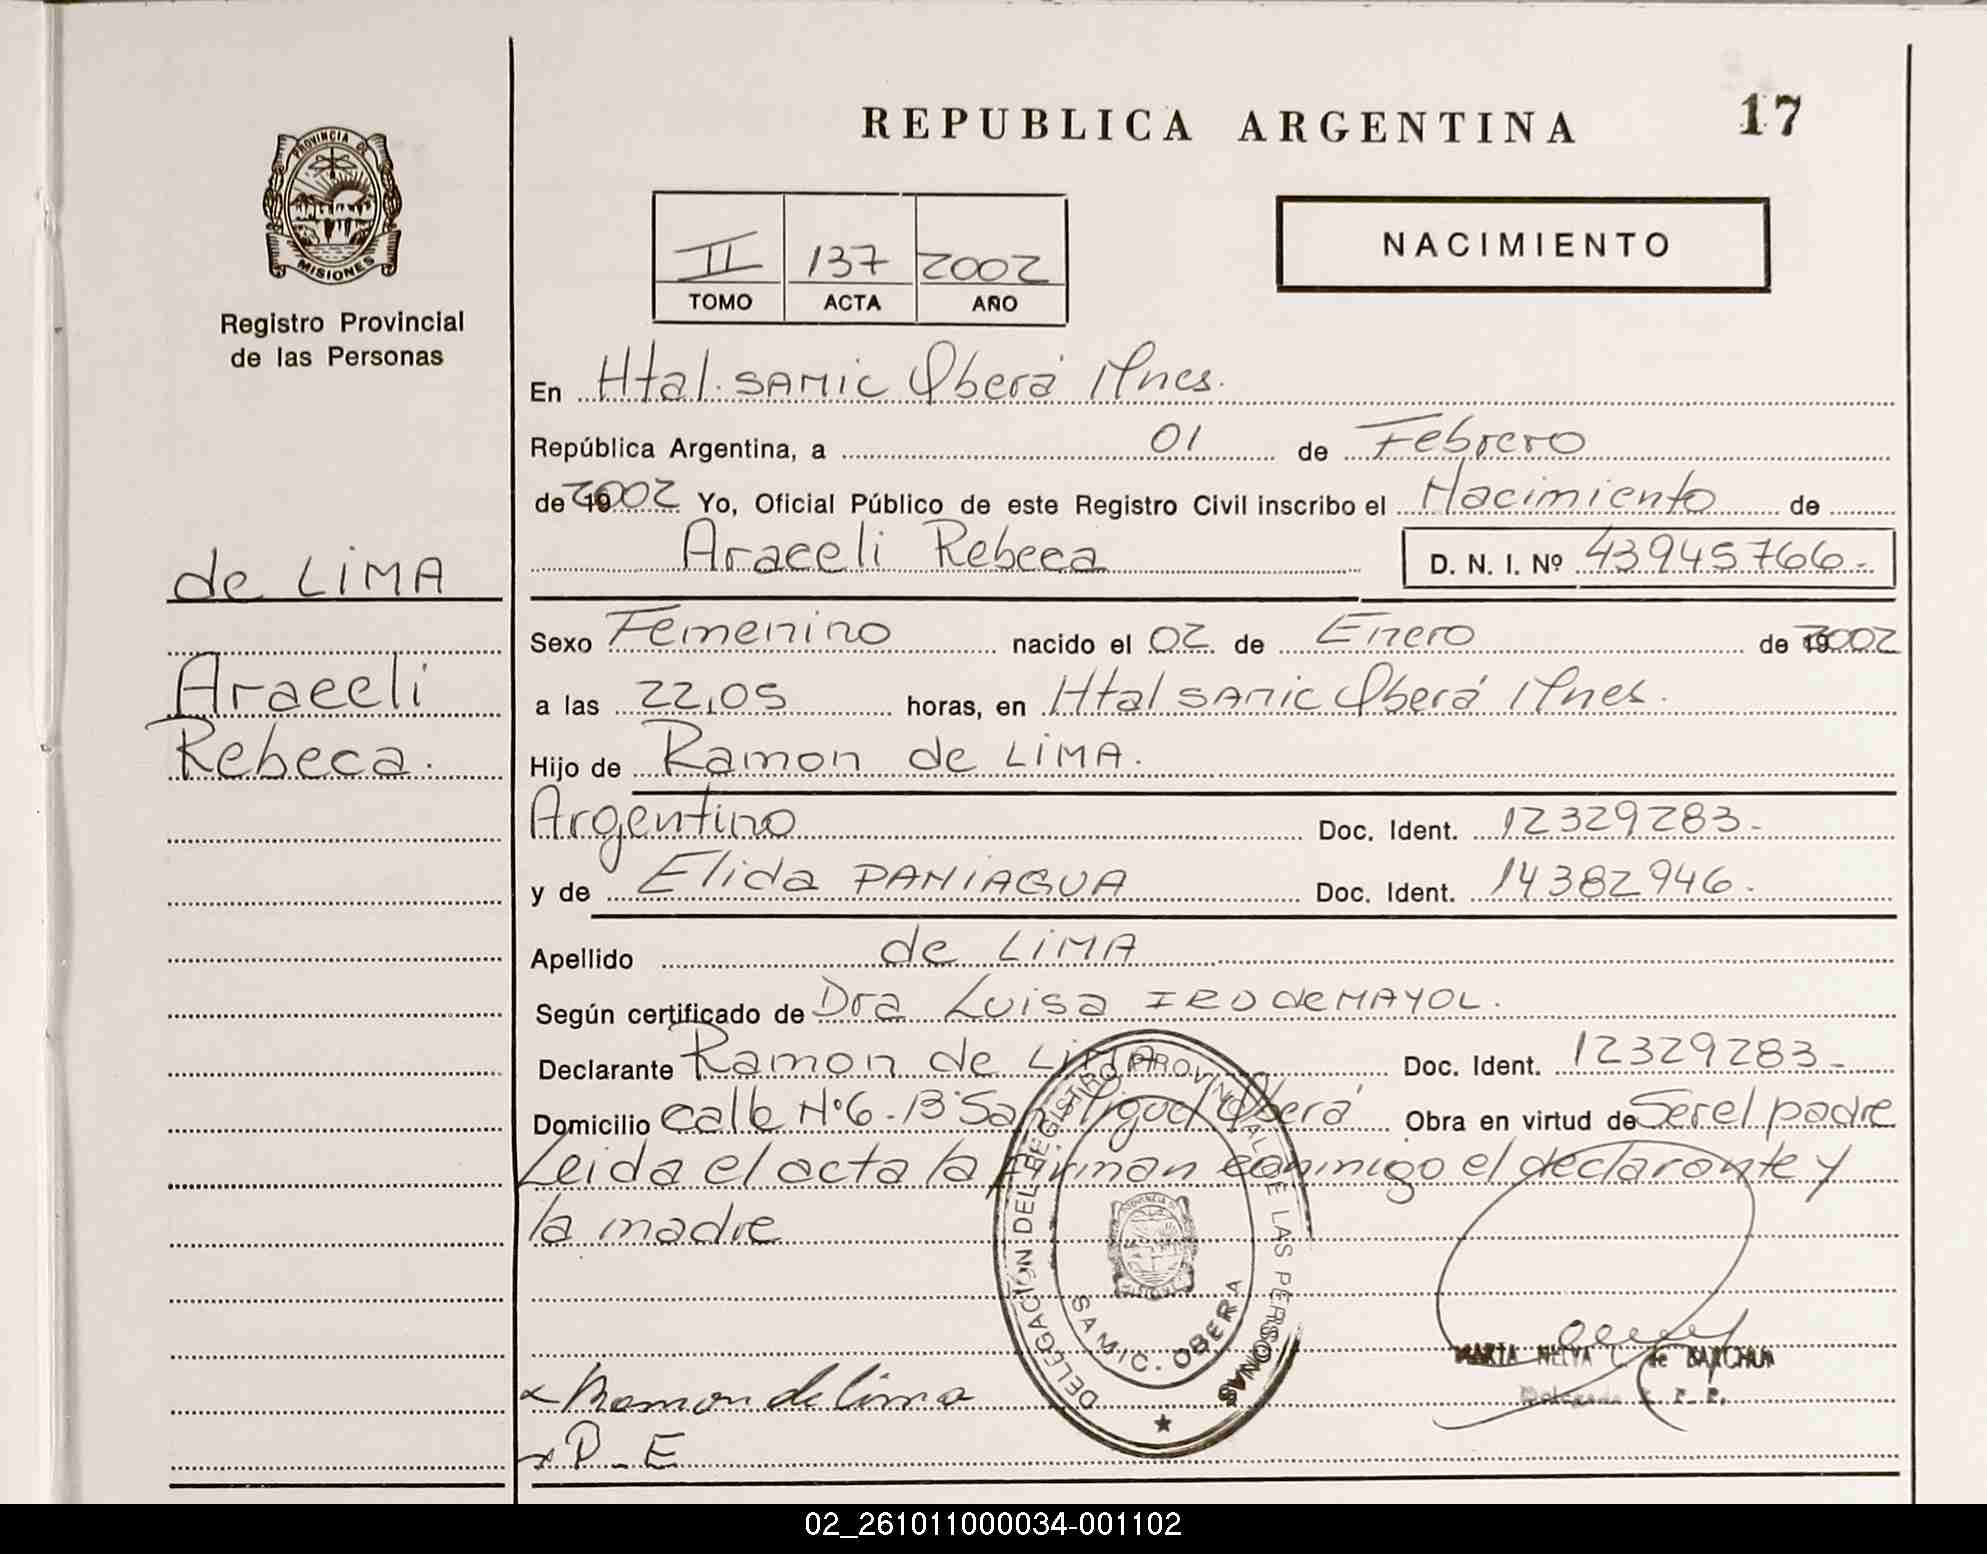 REPUBLICA ARGENTINA
17
PROVINCIA DE
MISIONES
Registro Provincial
de las Personas
II 137 2002
TOMO ACTA AÑO
NACIMIENTO
En Htal. SAMIC Oberá Mnes.
República Argentina, a 01 de Febrero
de 2002 Yo, Oficial Público de este Registro Civil inscribo el Nacimiento de
Araceli Rebeca D. N. I. Nº 43945766-
de LiMA
Araceli
Rebeca.
Sexo Femenino nacido el 02 de Enero de 2002
a las 22,05 horas, en Htal SAMIC Oberá Mnes.
Hijo de Ramon de LiMA.
Argentino Doc. Ident. 12329283-
y de Elida PANiAGUA Doc. Ident. 14382946.
Apellido de LiMA
Según certificado de Dra Luisa IRO de MAYOL.
Declarante Ramon de LiMA Doc. Ident. 12329283-
Domicilio calle Nº6-Bº San Miguel Oberá Obra en virtud de Ser el padre
Leida el acta la firman conmigo el declarante y
la madre
DELEGACIÓN DEL REGISTRO PROVINCIAL DE LAS PERSONAS
SAMIC. OBERA
MARIA NELVA de
x Ramon de lima
x P_E
02_261011000034-001102